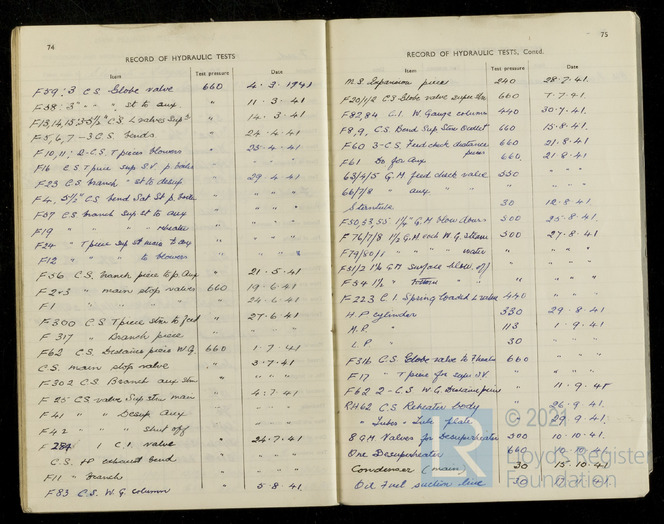 74
RECORD OF HYDRAULIC TESTS
Item Test pressure Date
F59; 3 C.S. Globe valve 660 4.3.1941
F58; 3" - " st to aux " 11.3.41
F13,14,15; 3-3½" C.S. L valves Sup S " 14.3.41
F5,6,7 - 3 C.S. bends " 24.4.41
F10,11; 2-C.S. T pieces blowers " 25.4.41
F16 C.S. T piece sup S.V. " " " "
F23 C.S. branch " st to desup " 29.4.41
F4. 5½" C.S. bend Sat St p. " " " "
F57 C.S. branch Sup st to aux " " " "
F19 " " " " " "
F24 " T piece Sup st to aux " " " "
F12 " " " to blowers " " " "
F56 C.S. branch piece to p. Aux " 21.5.41
F2+3 " main stop valves 660 19.6.41
F1 " " " " 24.6.41
F300 C.S. T piece " 27.6.41
F317 " Branch piece
F62 C.S. Distance piece W.G. 660 1.7.41
C.S. main stop valve " 3.7.41
F302 C.S. Branch aux " " " "
F25 C.S. valve Sup Stm main " 4.7.41
F41 " " Desup Aux " " " "
F42 " " " Shut off " " " "
F284 1 C.I. valve " 24.7.41
C.S. HP exhaust bend " " " "
F11 " branch " " " "
F83 C.S. W.G. column " 5.8.41
75
RECORD OF HYDRAULIC TESTS, Contd.
Item Test pressure Date
M.S. Expansion piece 240 28.7.41
F20/1/2 C.S. Globe valve 660 7.7.41
F82,84 C.I. W. Gauge column 440 30.7.41
F8,9, C.S. Bend Sup Stm Outlet 660 15.8.41
F60 3-C.S. Feed check distance pieces 660 21.8.41
F61 Do for Aux 660 21.8.41
63/4/5 G.M feed check valve 550 " "
66/7/8 " aux. " " " "
30 12.8.41
F50,53,55 1¼" G.M blow down 500 25.8.41
F76/7/8 1½ G.M cock W.G. Steam 500 27.8.41
F79/80/1 " " " water " " "
F51/2 1½ G.M Surface blow off " " "
F54 1½ " " " " "
F223 C.I Spring loaded L valve 440 " "
H.P cylinder 330 29.8.41
M.P. 113 1.9.41
L P 30 " "
F31b C.S. Globe valve to 660 " "
F17 " T piece for sup S.V. " " "
F62 2-C.S. W.G. Distance piece " 11.9.41
RH62 C.S Reheater body " 26.9.41
" Tubes + Tube plate " 29.9.41
8 GM Valves for Desuperheater 500 10.10.41
One Desuperheater 660 10.10.41
Condenser (main) 30 15.10.41
Oil Fuel suction line 30
© 2021
Lloyd's Register
Foundation